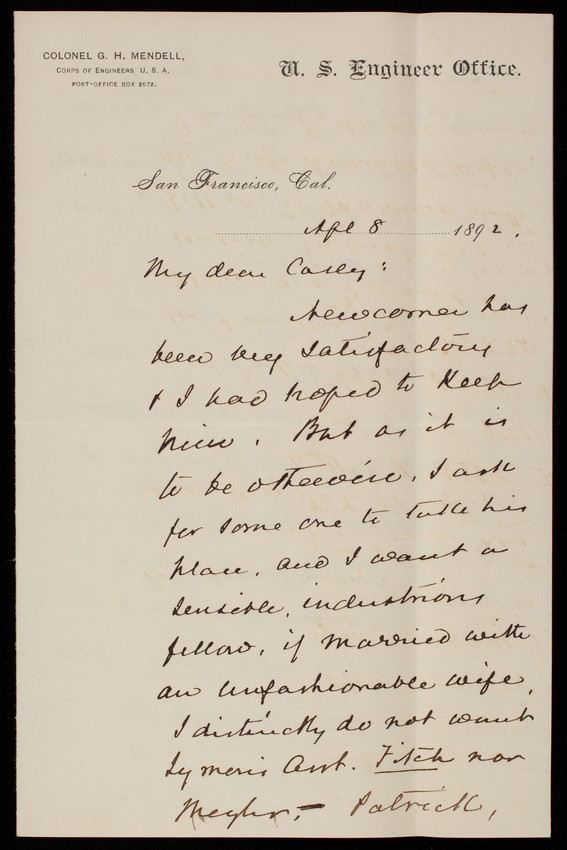 COLONEL G. H. MENDELL,
CORPS OF ENGINEERS, U. S. A.
POST-OFFICE BOX 2672.
U. S. Engineer Office.
San Francisco, Cal.
Apl 8 1892.
My dear Casey:
Newcomer has
been very satisfactory
& I had hoped to keep
him. But as it is
to be otherwise, I ask
for some one to take his
place, and I want a
sensible, industrious
fellow, if married with
an unfashionable wife,
I distinctly do not want
Asst. Fitch nor
Patrick,